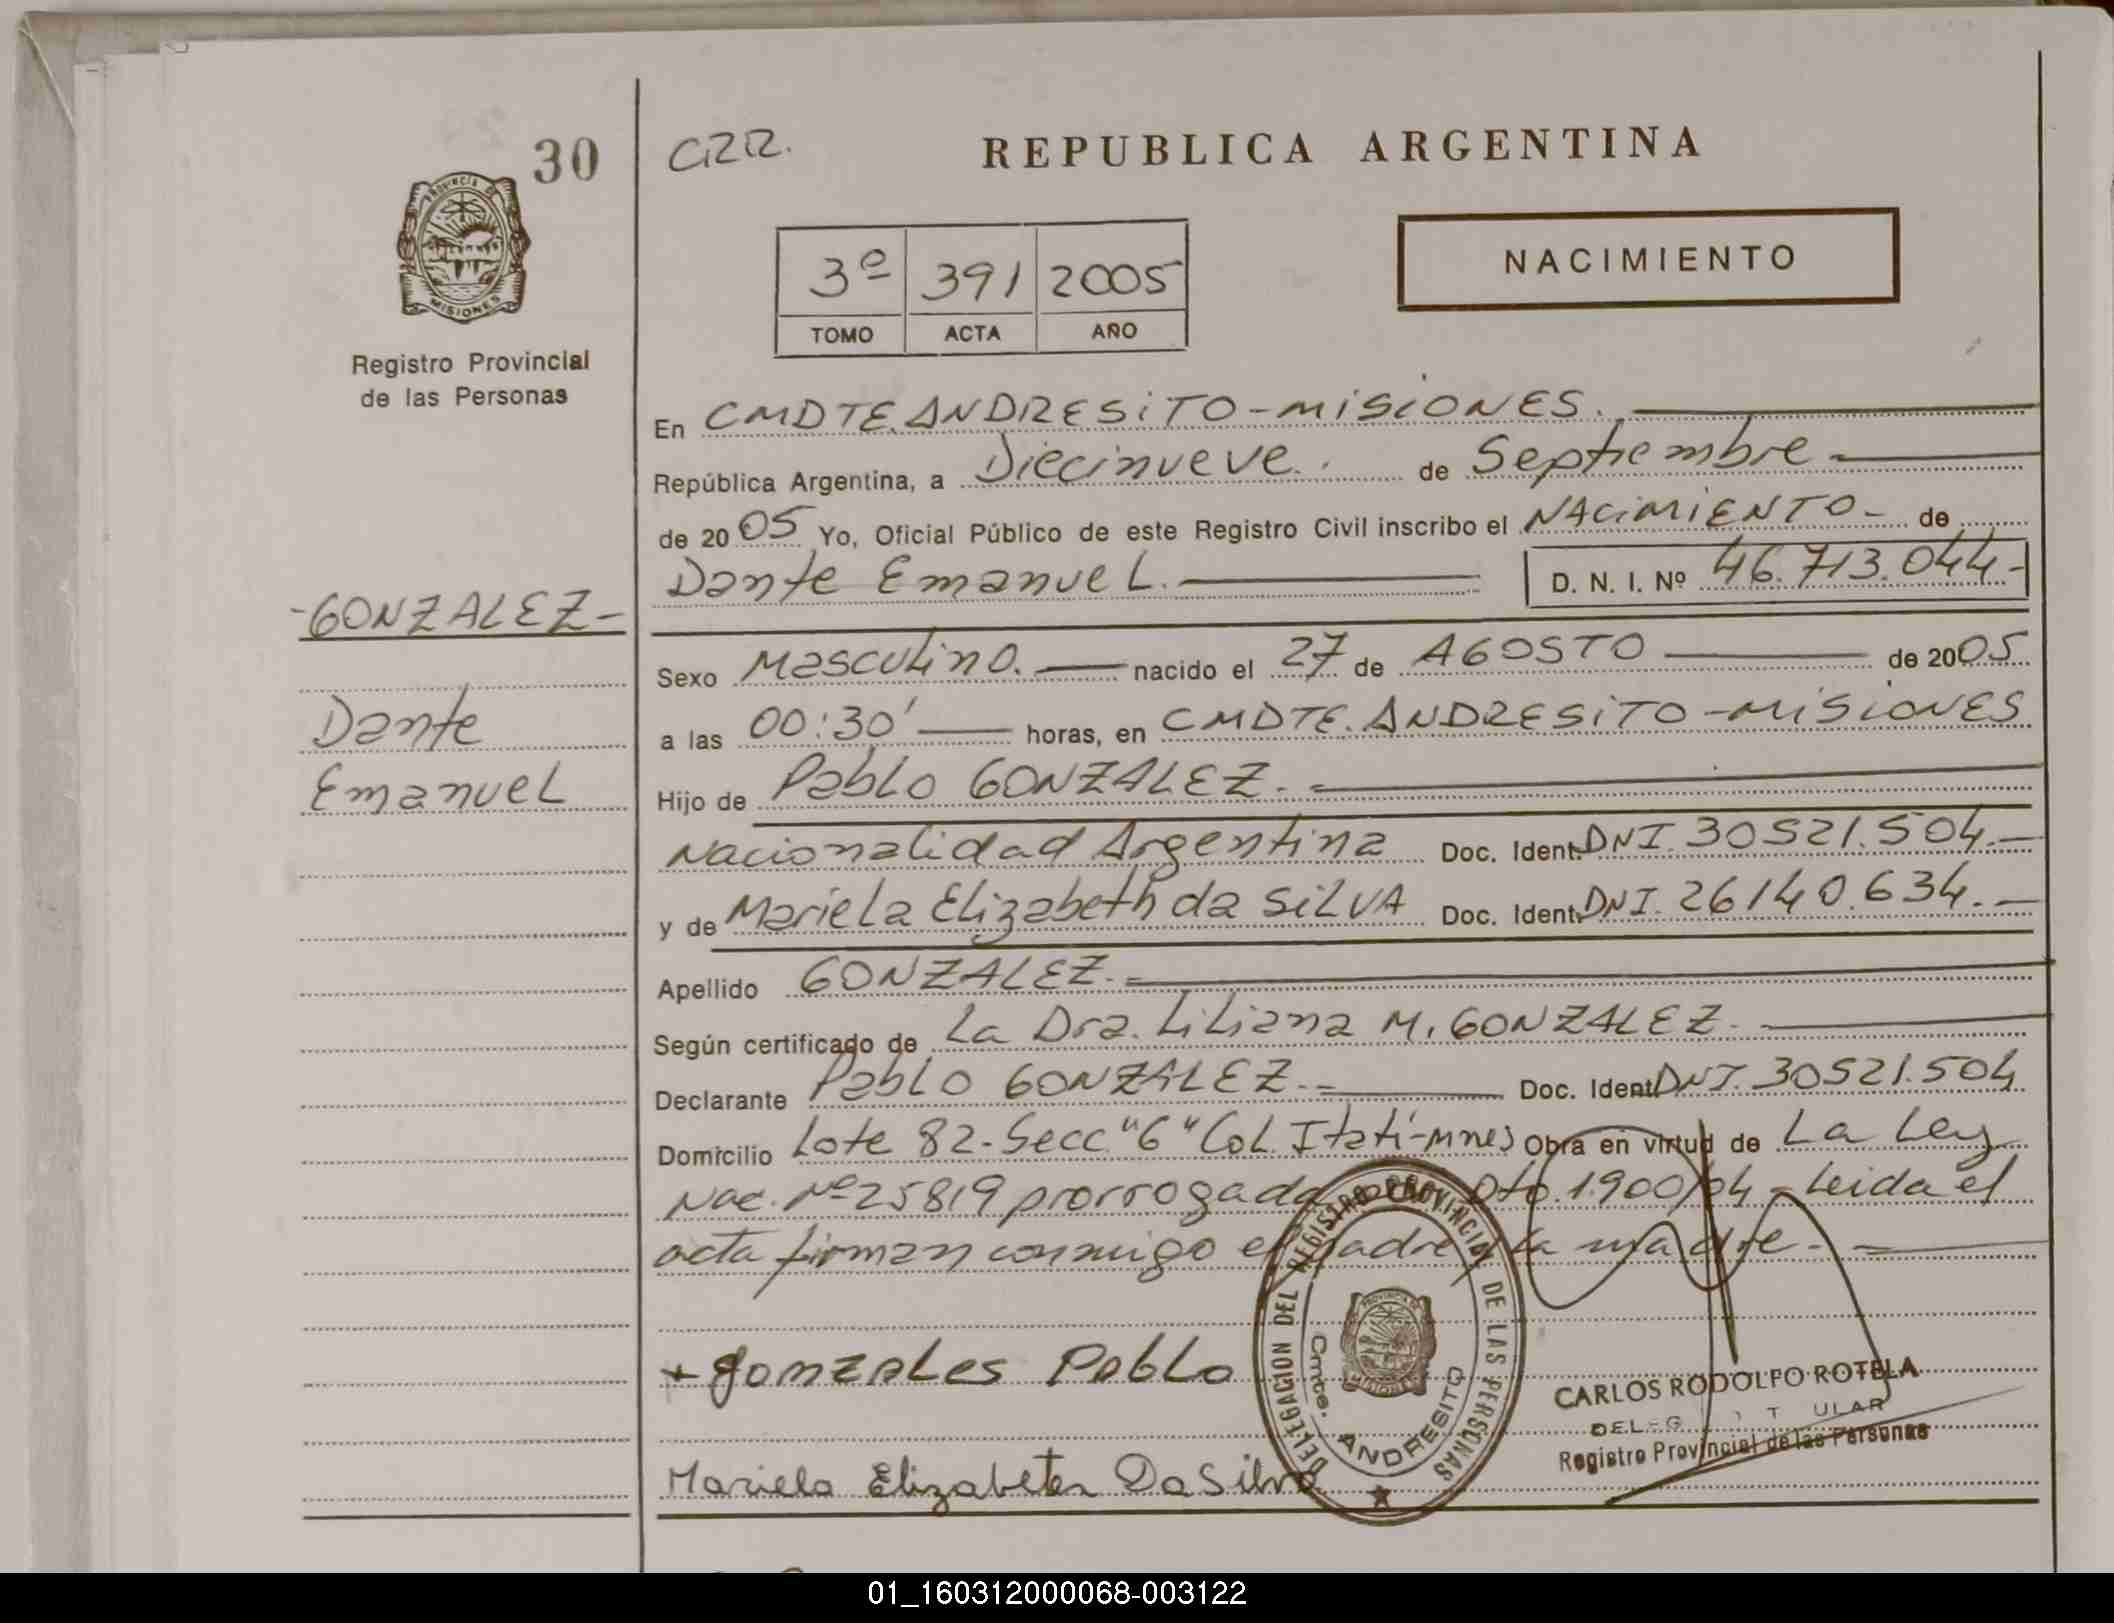 30
PROVINCIA DE
MISIONES
Registro Provincial
de las Personas
REPUBLICA ARGENTINA
3º 391 2005
TOMO ACTA AÑO
NACIMIENTO
En CMDTE. ANDRESITO - MISIONES.
República Argentina, a Diecinueve. de Septiembre
de 2005 Yo, Oficial Público de este Registro Civil inscribo el NACIMIENTO - de
Dante Emanuel. D. N. I. Nº 46.713.044-
-GONZALEZ-
Dante
Emanuel
Sexo Masculino. nacido el 27 de AGOSTO de 2005
a las 00:30' horas, en CMDTE. ANDRESITO - MISIONES
Hijo de Pablo GONZALEZ.
Nacionalidad Argentina Doc. Ident. DNI. 30521.504.-
y de Mariela Elizabeth da SILVA Doc. Ident. DNI. 26140.634.-
Apellido GONZALEZ.
Según certificado de La Dra. Liliana M. GONZALEZ.
Declarante Pablo GONZALEZ. Doc. Ident. DNI. 30521.504
Domicilio Lote 82- Secc. "6" Col. Itatí-Mnes Obra en virtud de La Ley
Nac. Nº 25819 prorrogada por Dto. 1.900/04 - Leida el
acta firman conmigo el padre y la madre.
+ Gonzales Pablo
Mariela Elizabeth Da Silva
DELEGACION DEL REGISTRO PROVINCIAL DE LAS PERSONAS
PROVINCIA DE
MISIONES
Cmte. ANDRESITO
CARLOS RODOLFO ROTELA
Registro Provincial de las Personas
01_160312000068-003122